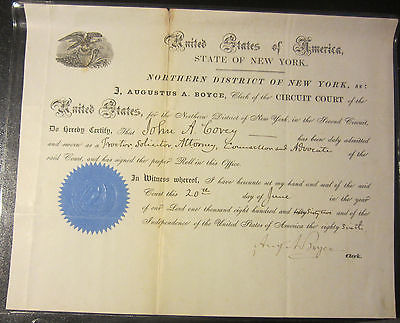 United States of America,
STATE OF NEW YORK.
NORTHERN DISTRICT OF NEW YORK, ss:
I, AUGUSTUS A. BOYCE, Clerk of the CIRCUIT COURT of the
United States, for the Northern District of New York, in the Second Circuit,
Do hereby Certify, That John A. Corey has been duly admitted
and sworn as a Proctor Solicitor Attorney, Councillor and Advocate of the
said Court, and has signed the proper Roll in this Office.
In Witness whereof, I have hereunto set my hand and seal of the said
Court this 20th day of June in the year
of our Lord one thousand eight hundred and sixty two and of the
Independence of the United States of America the eighty sixth
Aug A Boyce Clerk